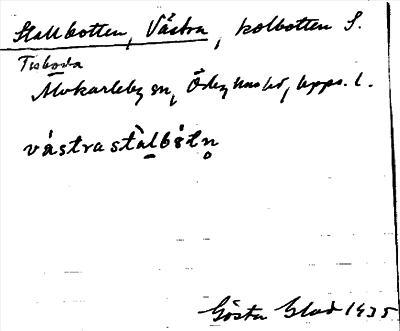 Stallbotten, Västra, kolbotten S.
Tisboda
Älvkarleby sn, Örbyhus hd, Upps. l.
västrastàlbòtn̥
Gösta Blad 1935